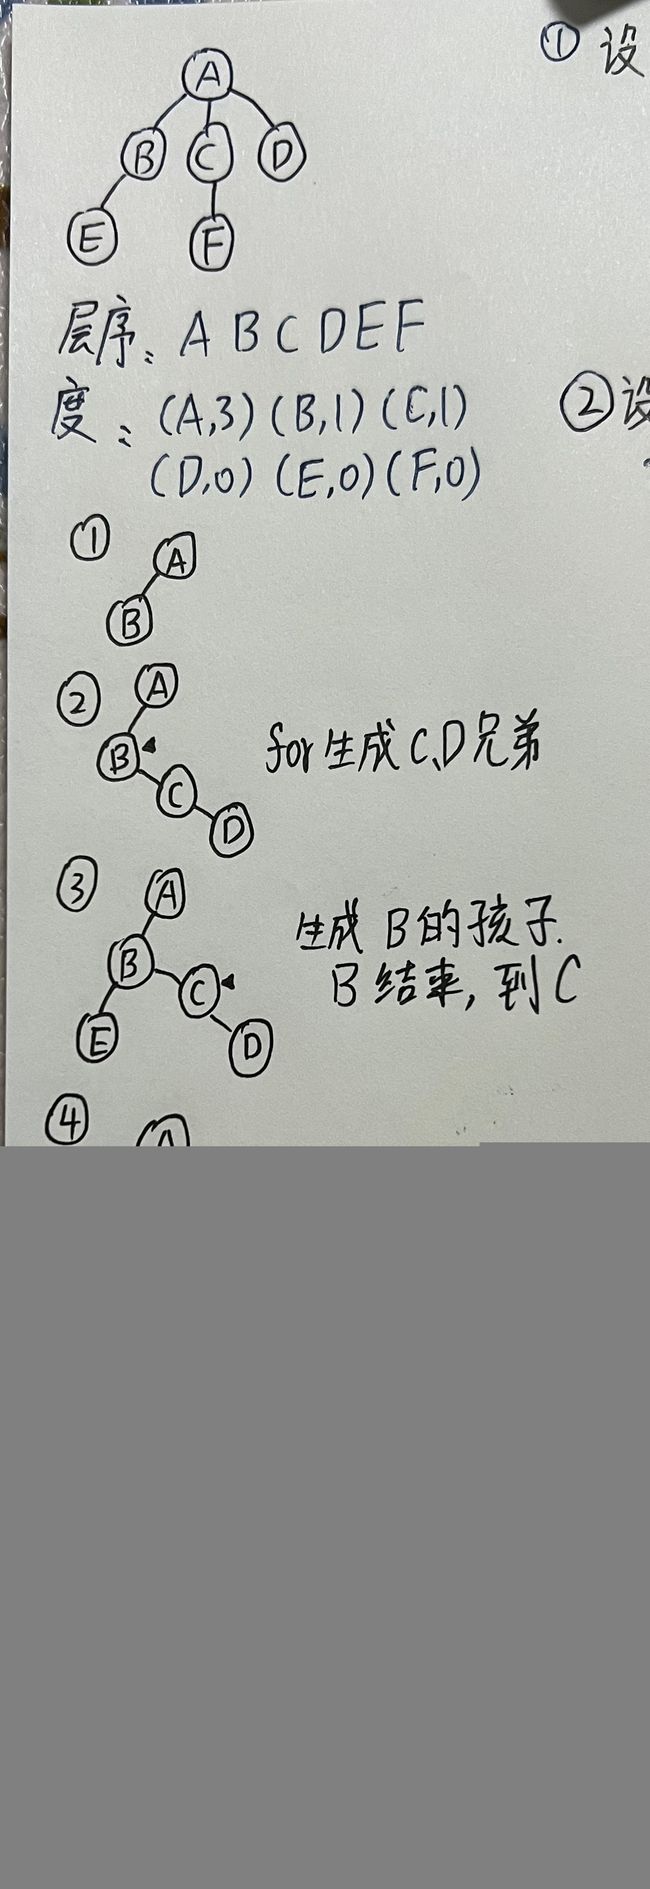 A
① 设
B C D
E F
层序: A B C D E F
度: (A,3) (B,1) (C,1)
② 设
(D,0) (E,0) (F,0)
① A
B
② A
B
for 生成 C、D 兄弟
C
D
③ A
生成 B 的孩子.
B
C
B 结束, 到 C
E
D
④ A